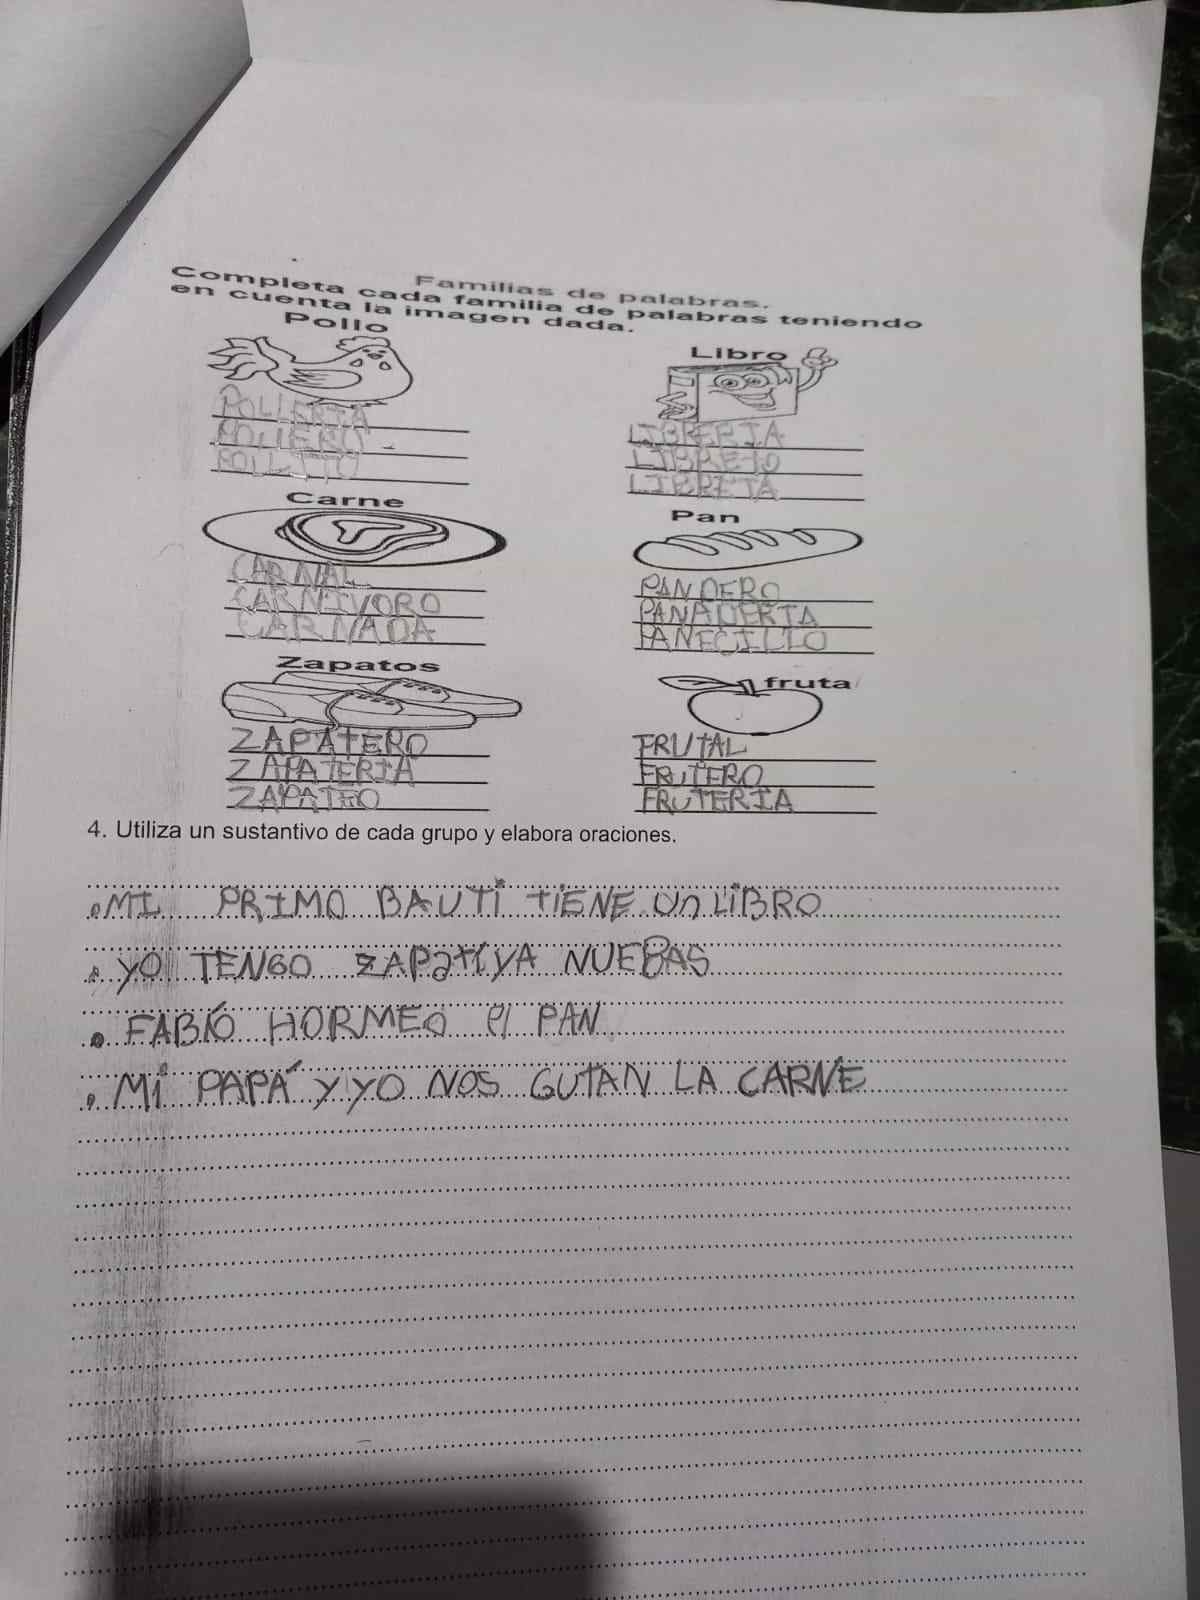 Familias de palabras.
Completa cada familia de palabras teniendo
en cuenta la imagen dada.
Pollo
POLLERIA
POLLERO
POLLITO
Libro
LIBRERIA
LIBRETO
LIBRETA
Carne
CARNAL
CARNIVORO
CARNADA
Pan
PANDERO
PANADERIA
PANECILLO
Zapatos
ZAPATERO
ZAPATERIA
ZAPATEO
fruta
FRUTAL
FRUTERO
FRUTERIA
4. Utiliza un sustantivo de cada grupo y elabora oraciones.
MI PRIMO BAUTI TIENE Un LIBRO
YO TENGO ZAPATIYA NUEBAS
FABIO HORMEO El PAN
Mi PAPÁ Y YO NOS GUTAN LA CARNE